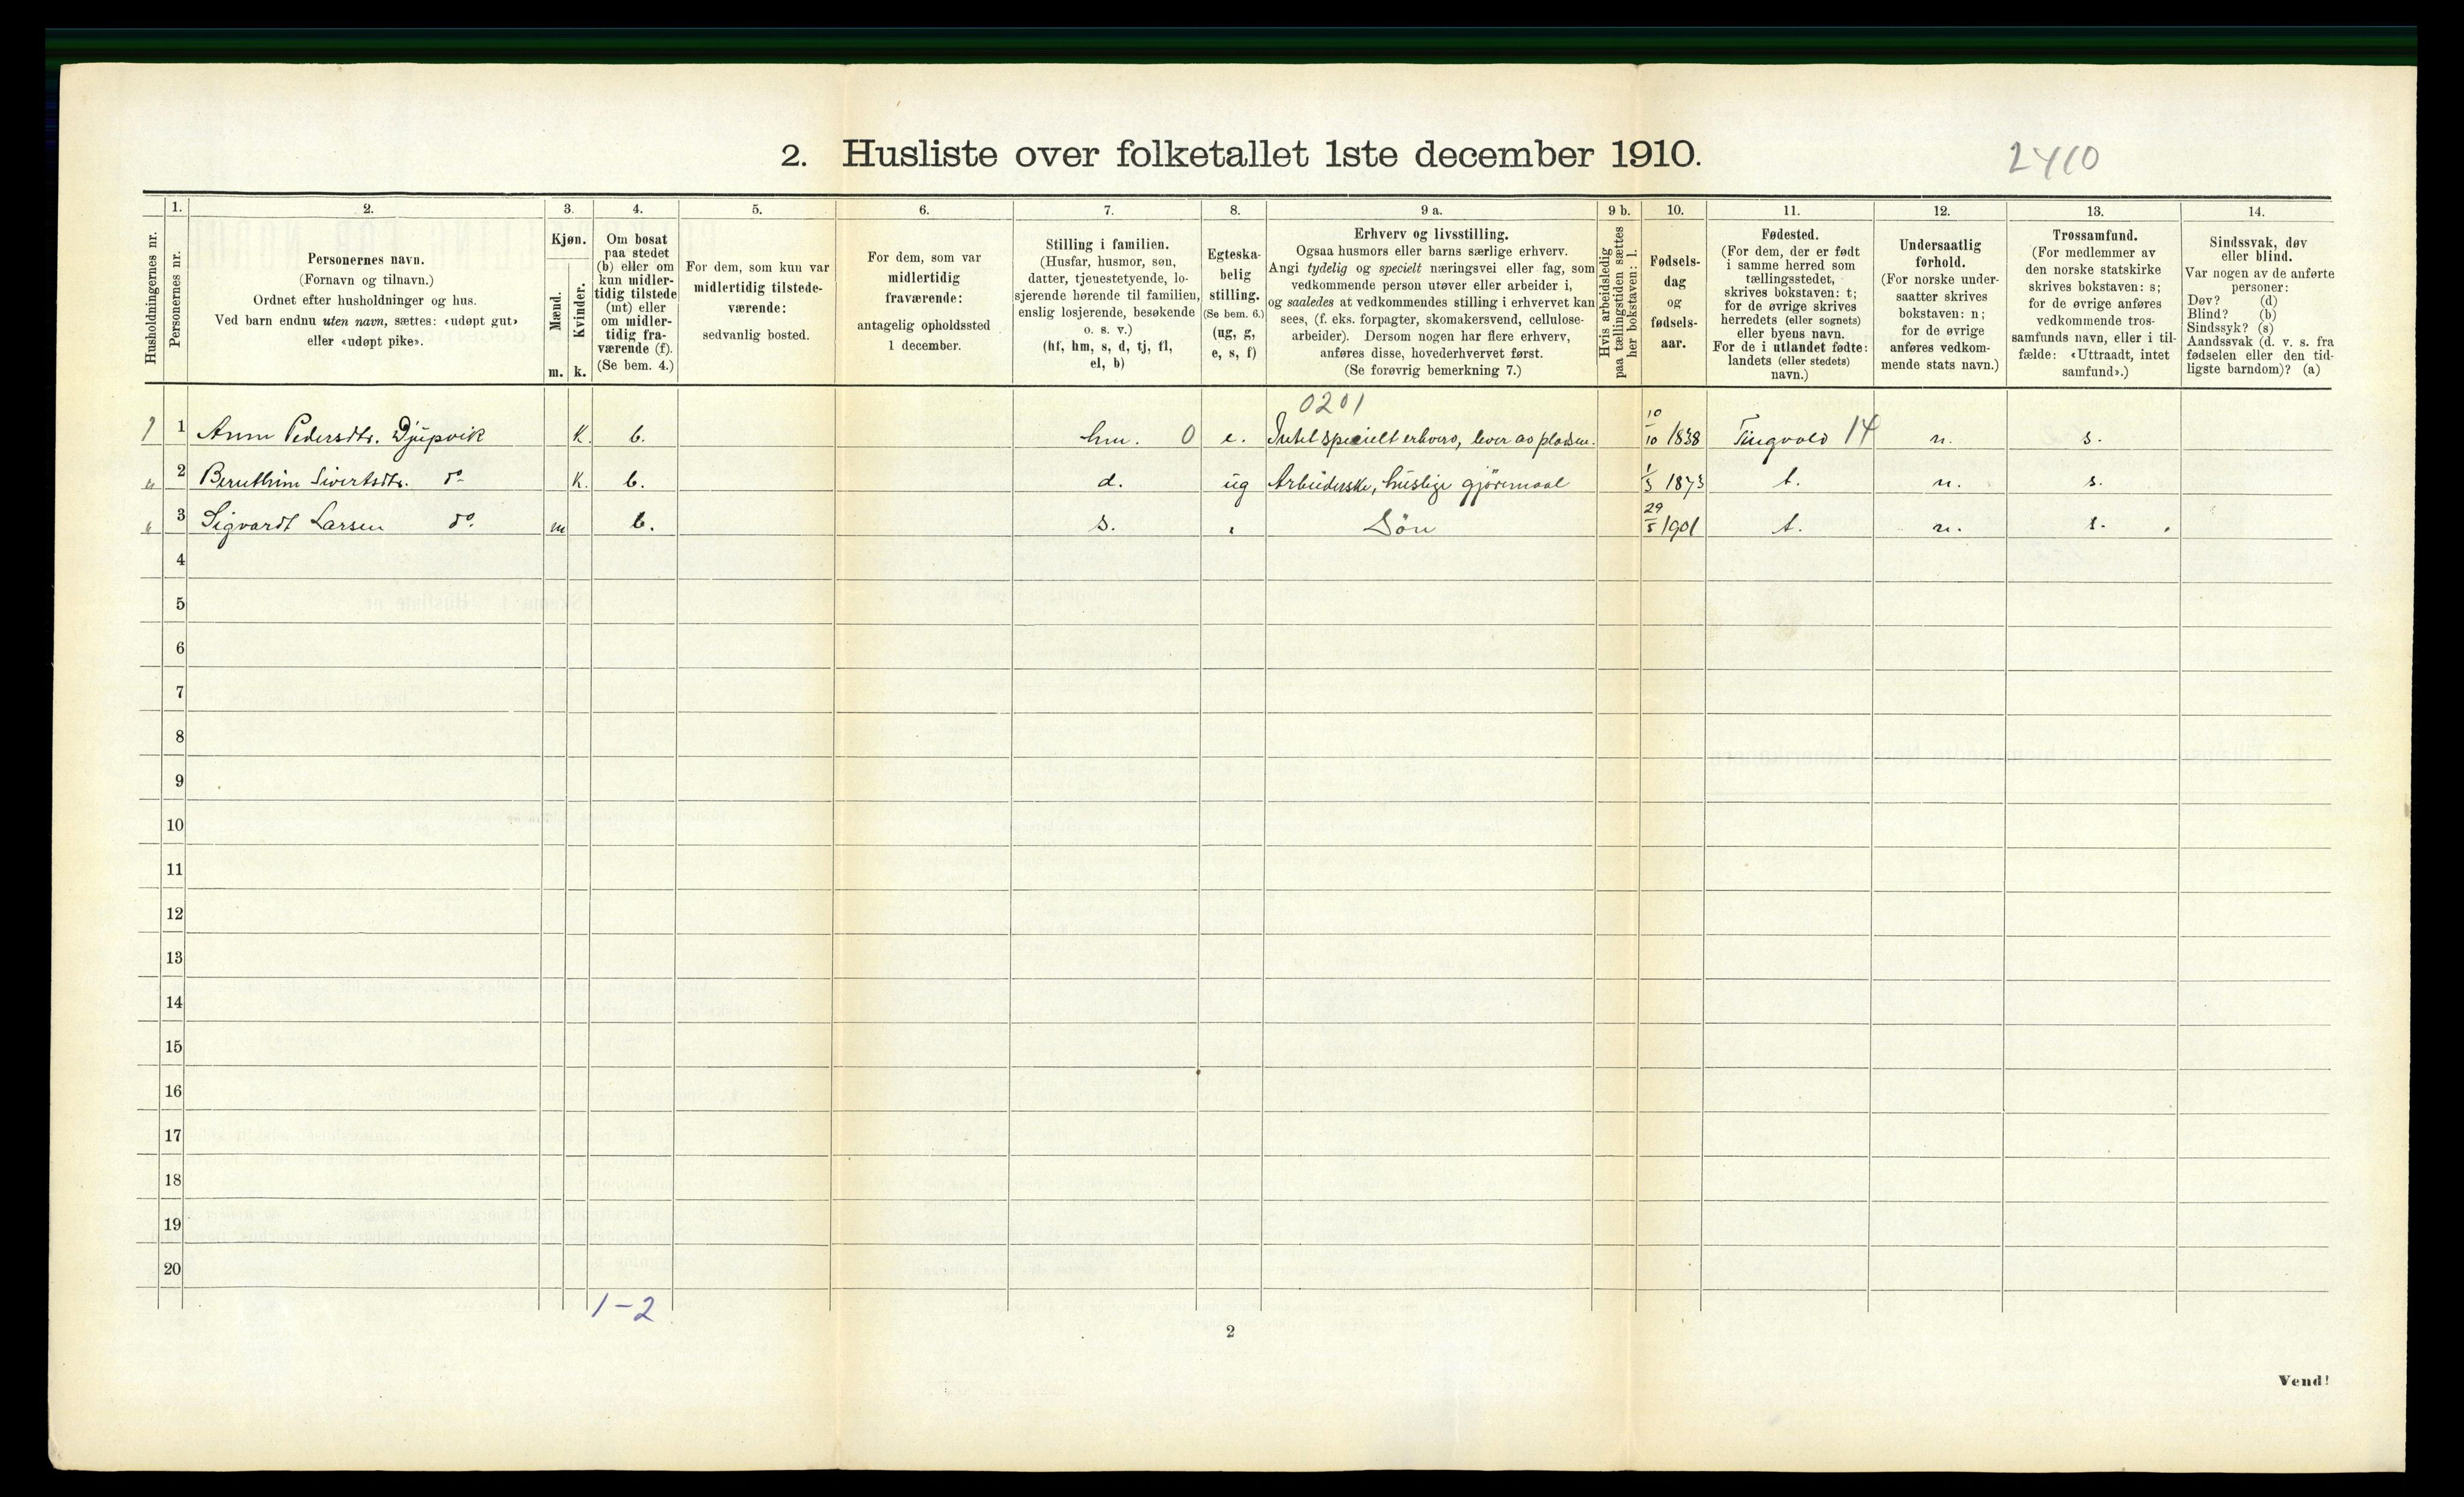 2. Husliste over folketallet 1ste december 1910.
2410
Husholdningernes nr.
1.
Personernes nr.
2.
Personernes navn.
(Fornavn og tilnavn.)
Ordnet efter husholdninger og hus.
Ved barn endnu uten navn, sættes: «udøpt gut»
eller «udøpt pike».
3.
Kjøn.
Mænd.
Kvinder.
m. k.
4.
Om bosat
paa stedet
(b) eller om
kun midler-
tidig tilstede
(mt) eller
om midler-
tidig fra-
værende (f).
(Se bem. 4.)
5.
For dem, som kun var
midlertidig tilstede-
værende:
sedvanlig bosted.
6.
For dem, som var
midlertidig
fraværende:
antagelig opholdssted
1 december.
7.
Stilling i familien.
(Husfar, husmor, søn,
datter, tjenestetyende, lo-
sjerende hørende til familien,
enslig losjerende, besøkende
o. s. v.)
(hf, hm, s, d, tj, fl,
el, b)
8.
Egteska-
belig
stilling.
(Se bem. 6.)
(ug, g,
e, s, f)
9 a.
Erhverv og livsstilling.
Ogsaa husmors eller barns særlige erhverv.
Angi tydelig og specielt næringsvei eller fag, som
vedkommende person utøver eller arbeider i,
og saaledes at vedkommendes stilling i erhvervet kan
sees, (f. eks. forpagter, skomakersvend, cellulose-
arbeider). Dersom nogen har flere erhverv,
anføres disse, hovederhvervet først.
(Se forøvrig bemerkning 7.)
9 b.
Hvis arbeidsledig
paa tællingstiden sættes
her bokstaven: l.
10.
Fødsels-
dag
og
fødsels-
aar.
11.
Fødested.
(For dem, der er født
i samme herred som
tællingsstedet,
skrives bokstaven: t;
for de øvrige skrives
herredets (eller sognets)
eller byens navn.
For de i utlandet fødte:
landets (eller stedets)
navn.)
12.
Undersaatlig
forhold.
(For norske under-
saatter skrives
bokstaven: n;
for de øvrige
anføres vedkom-
mende stats navn.)
13.
Trossamfund.
(For medlemmer av
den norske statskirke
skrives bokstaven: s;
for de øvrige anføres
vedkommende tros-
samfunds navn, eller i til-
fælde: «Uttraadt, intet
samfund».)
14.
Sindssvak, døv
eller blind.
Var nogen av de anførte
personer:
Døv? (d)
Blind? (b)
Sindssyk? (s)
Aandssvak (d. v. s. fra
fødselen eller den tid-
ligste barndom)? (a)
0201
1 1 Anne Pedersdtr. Djupvik K. b. hm. 0 e. Intet specielt erhverv, lever av pladsen. 10/10 1838 Tingvold 14 n. s.
2 Beruthine Sivertsdtr. do K. b. d. ug Arbeiderske, huslige gjøremaal 1/3 1873 t. n. s.
3 Sigvardt Larsen do. m b. s. Søn 29/5 1901 t. n. s.
4
5
6
7
8
9
10
11
12
13
14
15
16
17
18
19
20
1-2
2
Vend!